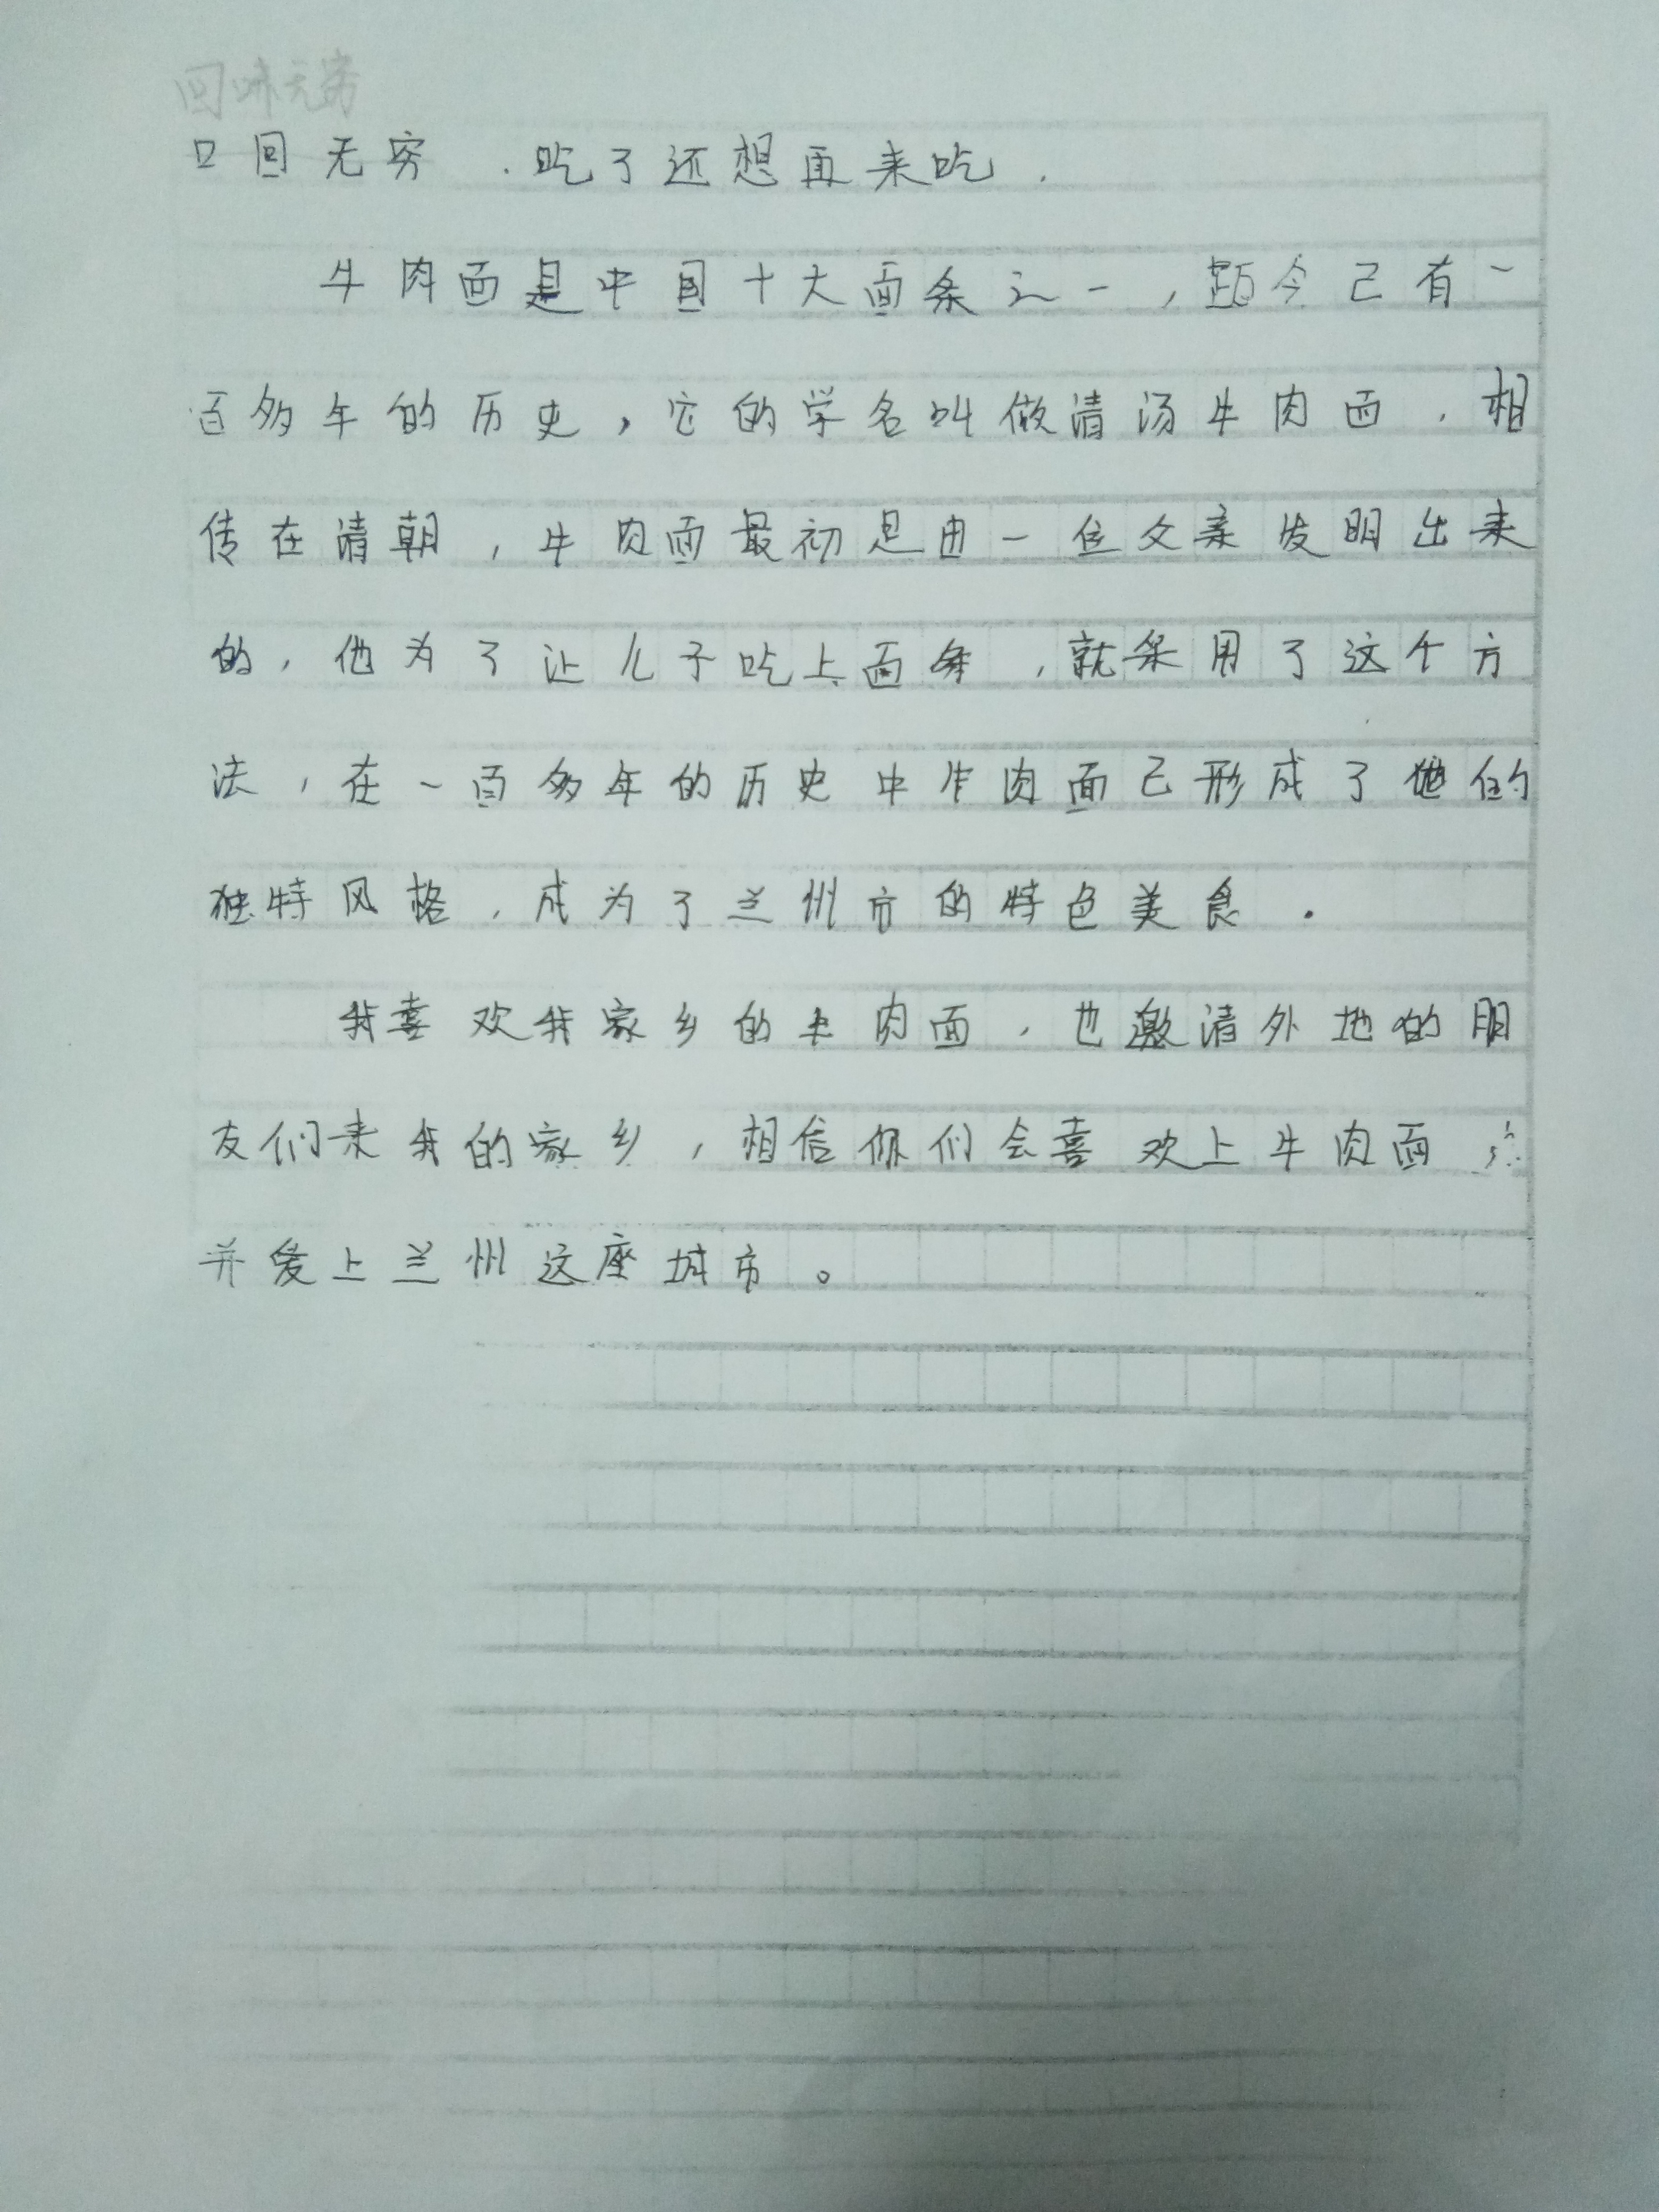 回味无穷
口回无穷.吃了还想再来吃.
牛肉面是中国十大面条之一,距今已有一
百多年的历史,它的学名叫做清汤牛肉面.相
传在清朝,牛肉面最初是由一位父亲发明出来
的,他为了让儿子吃上面条,就采用了这个方
法,在一百多年的历史中牛肉面已形成了他的
独特风格,成为了兰州市的特色美食.
我喜欢我家乡的牛肉面,也邀清外地的朋
友们来我的家乡,相信你们会喜欢上牛肉面
并爱上兰州这座城市。